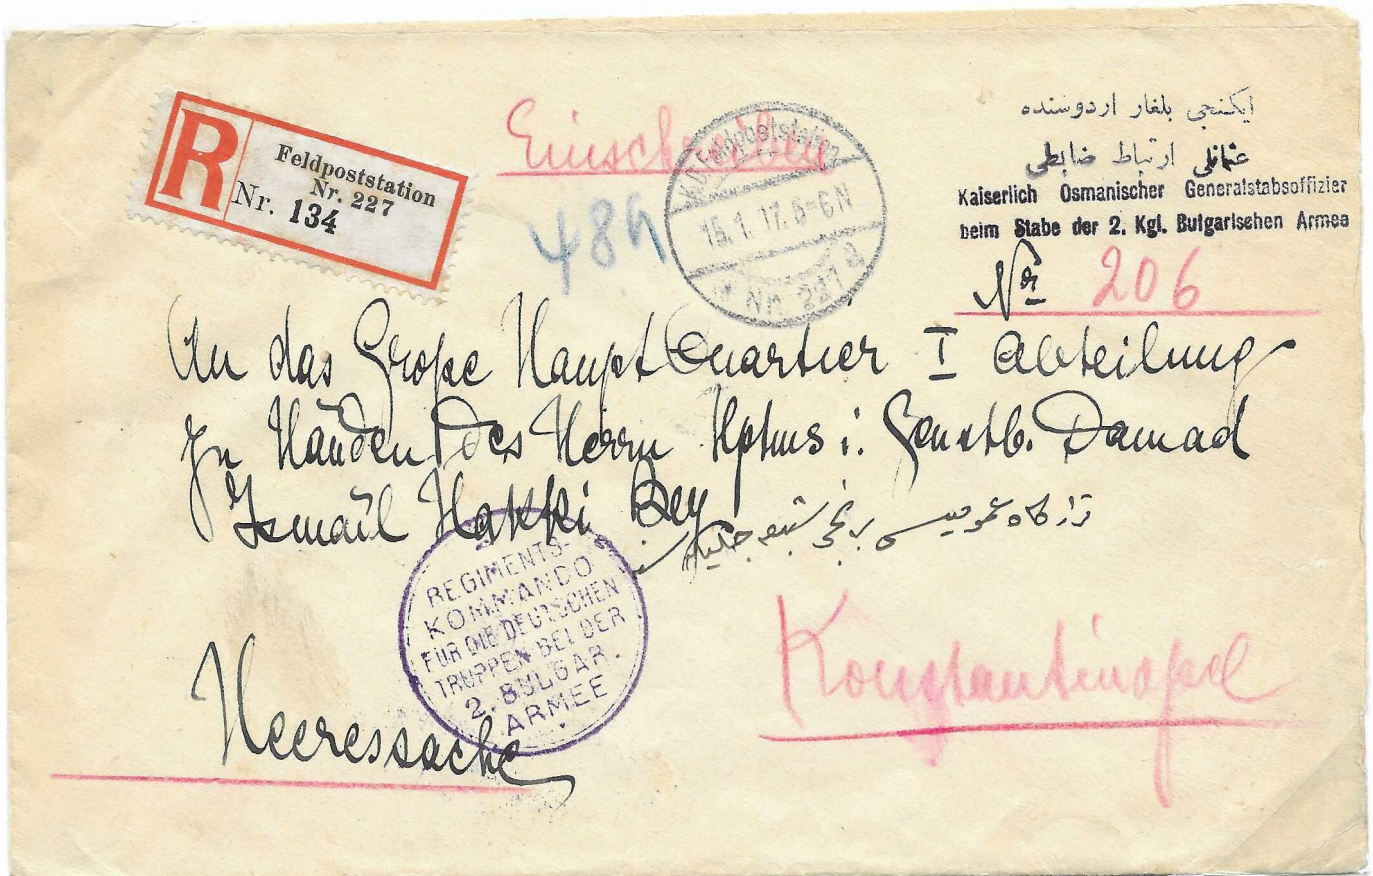 R
Feldpoststation
Nr. 227
Nr. 134
Einschreiben
K.D. Feldpoststation
15.1.17. 5-6 N
* Nr. 227 a)
48h
ایكنجی بلغار اردوسنده
عثمانلی ارتباط ضابطی
Kaiserlich Osmanischer Generalstabsoffizier
beim Stabe der 2. Kgl. Bulgarischen Armee
Nr 206
An das Große Haupt Quartier I Abteilung
Zu Händen des Herrn Hptms i. Genstb. Damad
Ismaïl Hakki Bey
قرارگاه عمومیسی برنجی شعبه
REGIMENTS-
KOMMANDO
FÜR DIE DEUTSCHEN
TRUPPEN BEI DER
2. BULGAR.
ARMEE
Konstantinopel
Heeressache